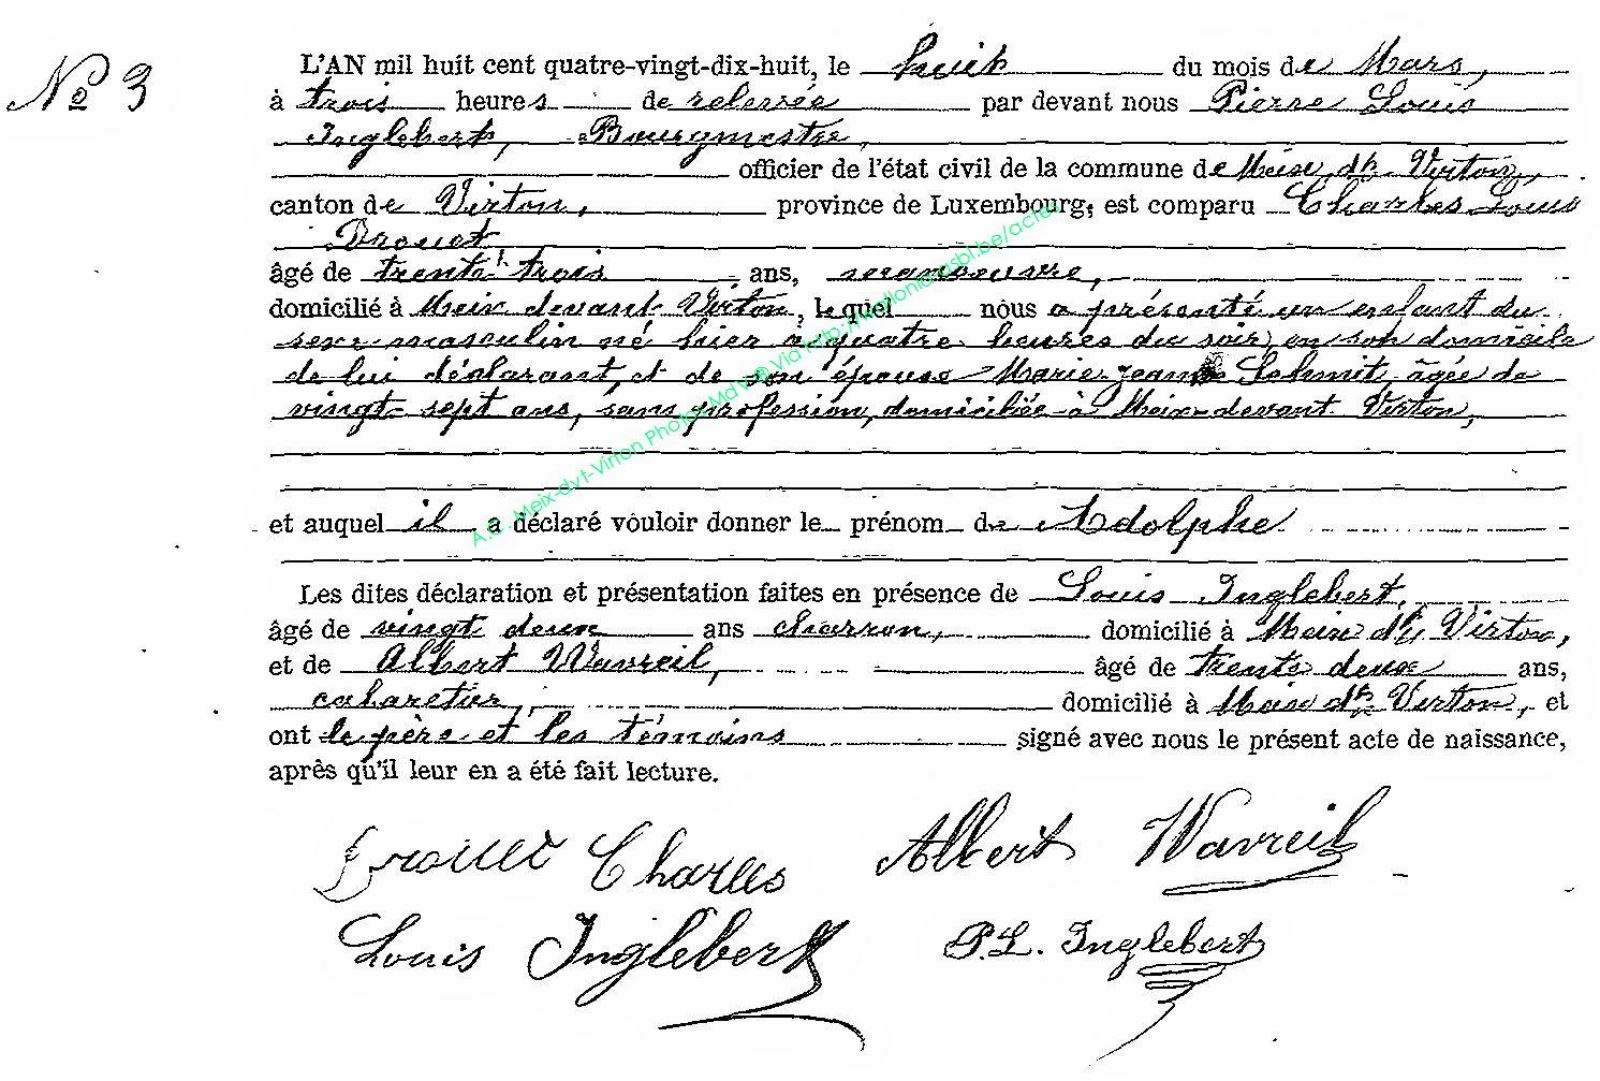 No 3
L'AN mil huit cent quatre-vingt-dix-huit, le huit du mois de Mars,
à trois heures de relevée par devant nous Pierre Louis
Inglebert, Bourgmestre,
officier de l'état civil de la commune de Meix dt Virton,
canton de Virton, province de Luxembourg, est comparu Charles Louis
Drouet
âgé de trente trois ans, manoeuvre,
domicilié à Meix devant Virton, lequel nous a présenté un enfant du
sexe masculin né hier à quatre heures du soir, en son domicile
de lui déclarant, et de son épouse Marie-Jeanne Schmit, âgée de
vingt-sept ans, sans profession, domiciliée à Meix-devant Virton,
et auquel il a déclaré vouloir donner le prénom de Adolphe
Les dites déclaration et présentation faites en présence de Louis Inglebert,
âgé de vingt deux ans charron, domicilié à Meix dt Virton,
et de Albert Wavreil, âgé de trente deux ans,
cabaretier, domicilié à Meix dt Virton, et
ont le père et les témoins signé avec nous le présent acte de naissance,
après qu'il leur en a été fait lecture.
Drouet Charles Albert Wavreil
Louis Inglebert P.L. Inglebert
Meix-dvt-Virton Photos Md Via http://